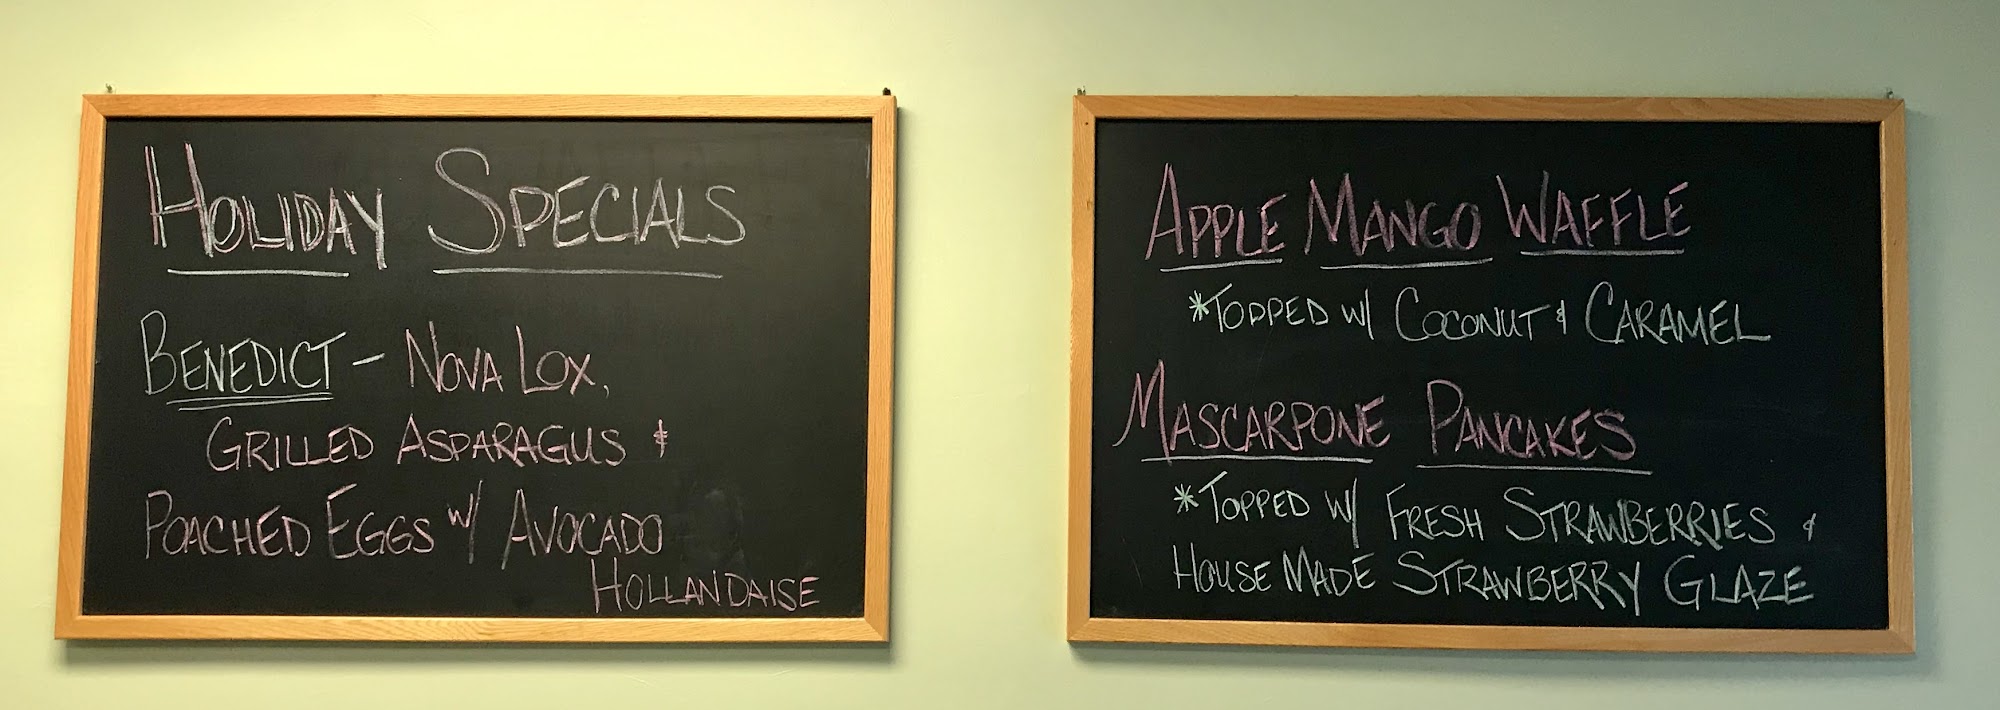 HOLIDAY SPECIALS
BENEDICT - NOVA LOX,
GRILLED ASPARAGUS &
POACHED EGGS W/ AVOCADO
HOLLANDAISE
APPLE MANGO WAFFLE
*TOPPED W/ COCONUT & CARAMEL
MASCARPONE PANCAKES
*TOPPED W/ FRESH STRAWBERRIES &
HOUSE MADE STRAWBERRY GLAZE